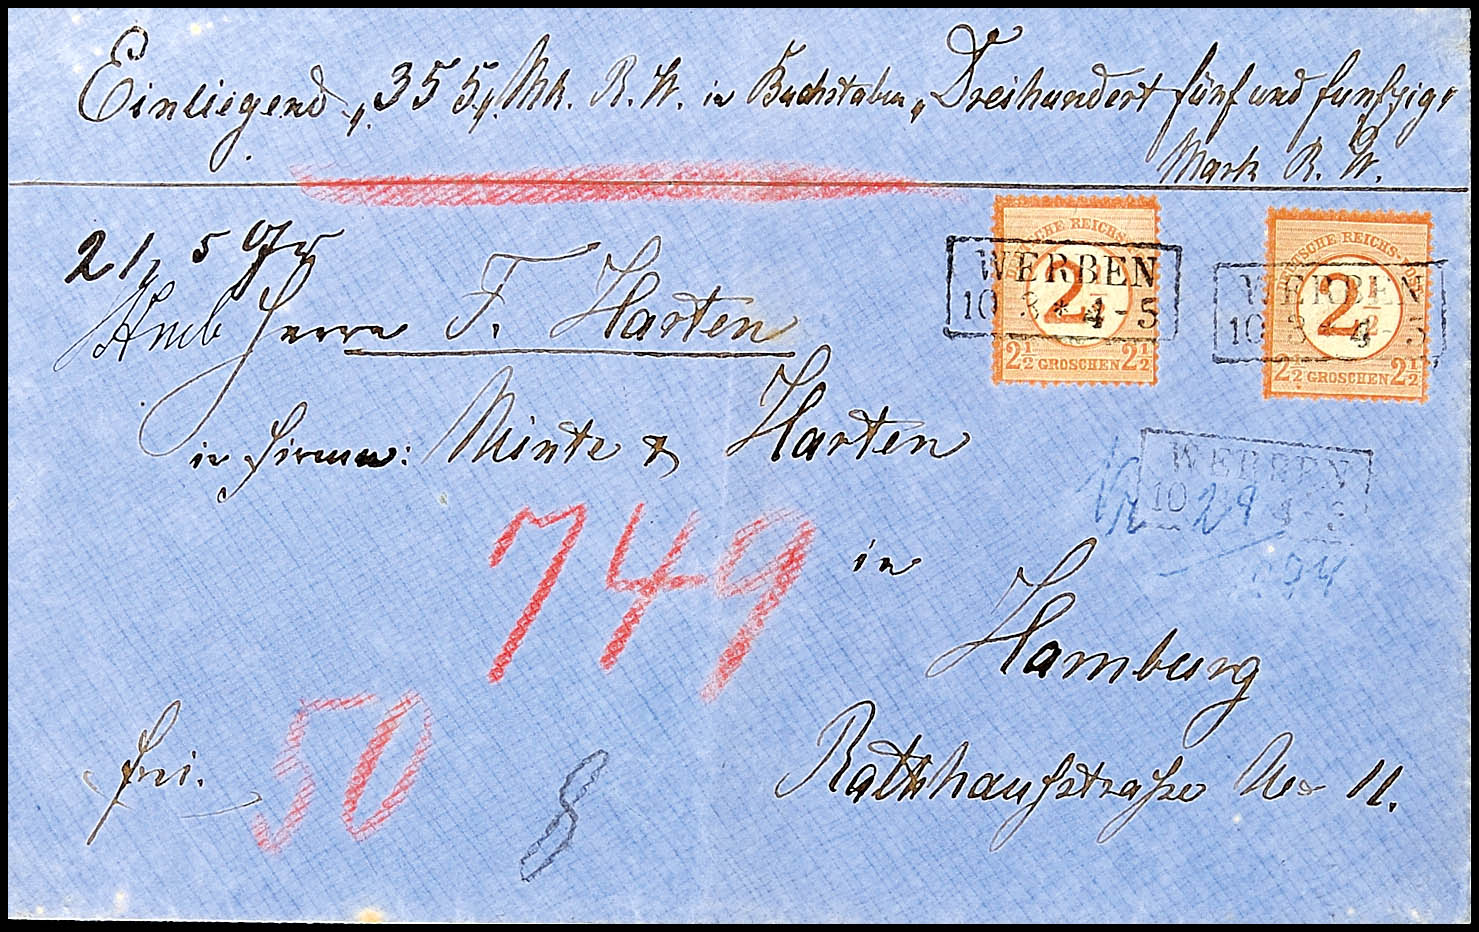 Einliegend „355„ Mk. R. W. in Buchstaben „Dreihundert fünf und funfzig„
Mark R. W.
21, 5 Gr
Herrn F. Harten
in Firma: Minte & Harten
in
Hamburg
Rathhausstraße No 11.
frei.
749
50
8
DEUTSCHE REICHS-POST
2½
2½ GROSCHEN 2½
WERBEN
10 3 * 4-5
DEUTSCHE REICHS-POST
2½
2½ GROSCHEN 2½
WERBEN
10 3 * 4-5
WERBEN
10